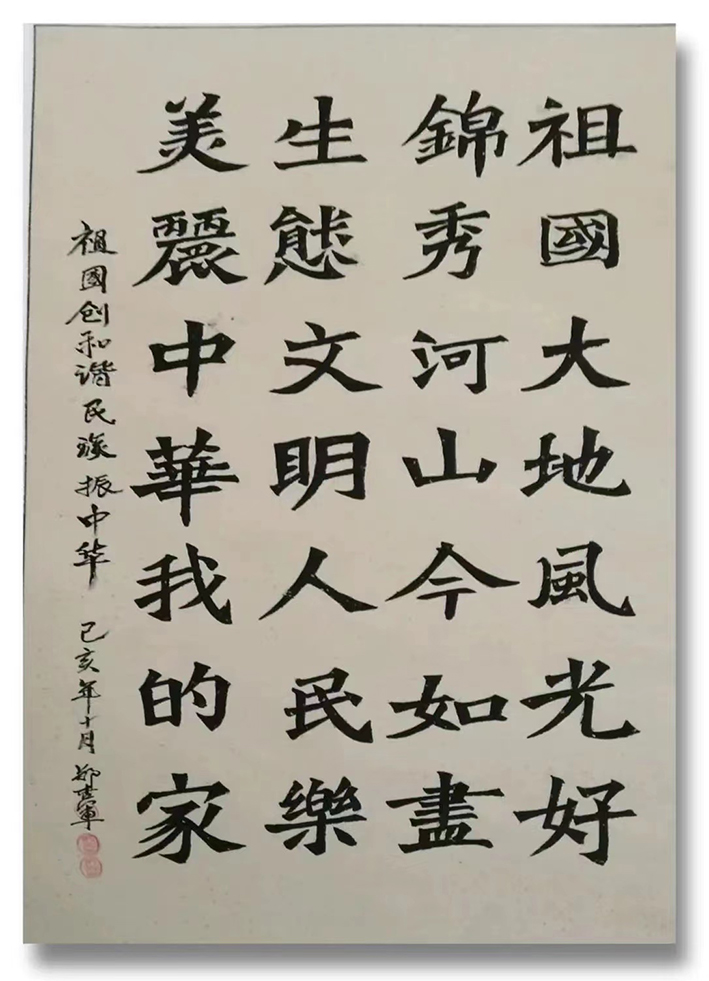 祖國大地風光好
錦秀河山今如畫
生態文明人民樂
美麗中華我的家
祖國创和谐民族振中华 己亥年十月 郑世軍